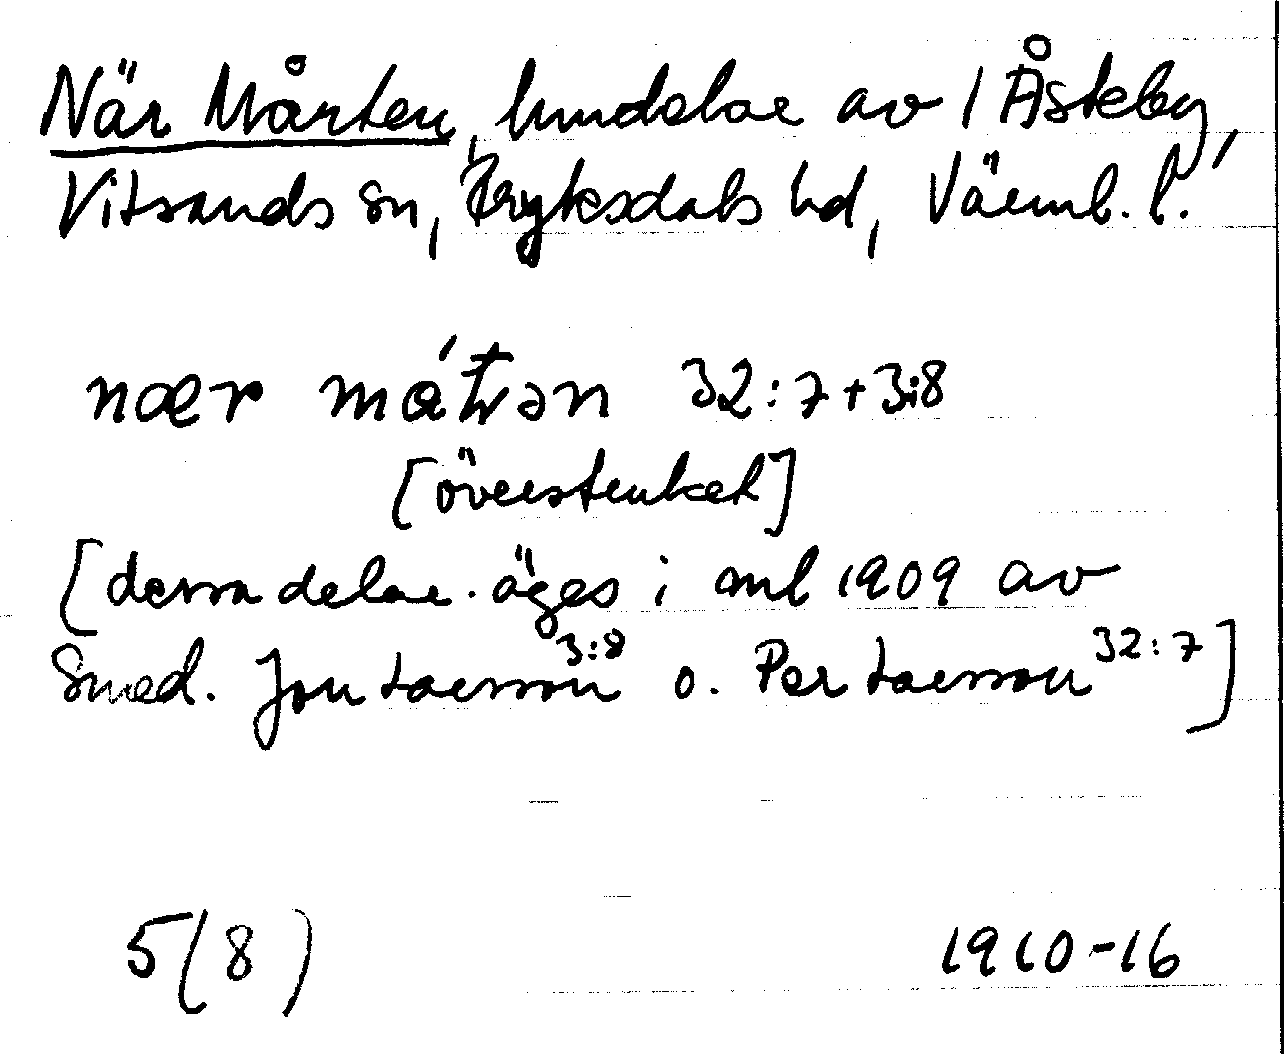 När Mårten, hmdelar av / Åsteby,
Vitsands sn, Fryksdals hd, Värml. l.
nær mǻtən 32:7+3:8
[överstruket]
[dessa delar äges i ml 1909 av
Smed. Jon Larsson 3:8 o. Per Larsson 32:7]
5(8) 1910-16